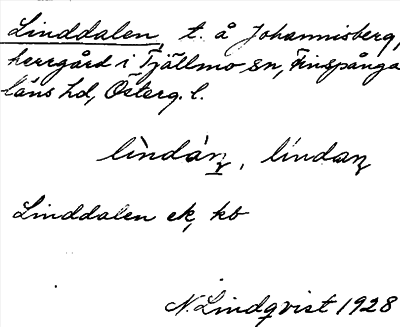 Linddalen, t. å Johannisberg,
herrgård i Tjällmo sn, Finspånga
läns hd, Österg. l.
lìndáṇ, líndaṇ
Linddalen ek, kb
N. Lindqvist 1928